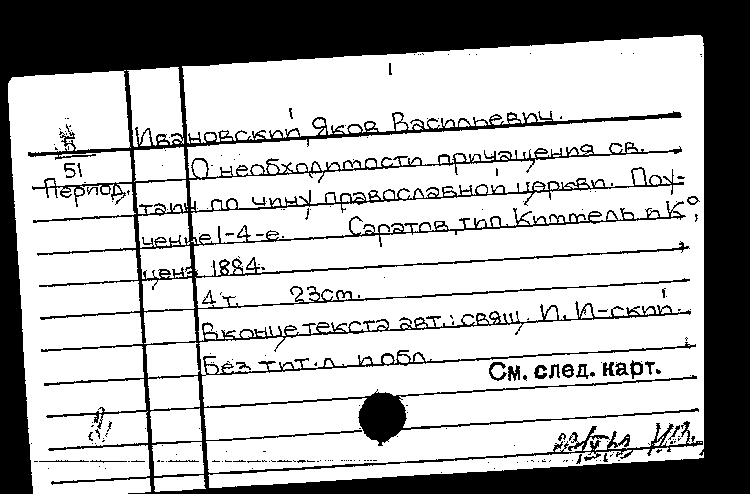 Ивановский, Яков Васильевич.
51
Период.
О необходимости причащения св.
тайн по чину православной церкви. Поу-
чение 1-4-е. Саратов, тип. Киммель и К°,
ценз. 1884.
4 т. 23 ст.
В конце текста авт.: свящ. И. И-ский.
Без тит. л. и обл.
См. след. карт.